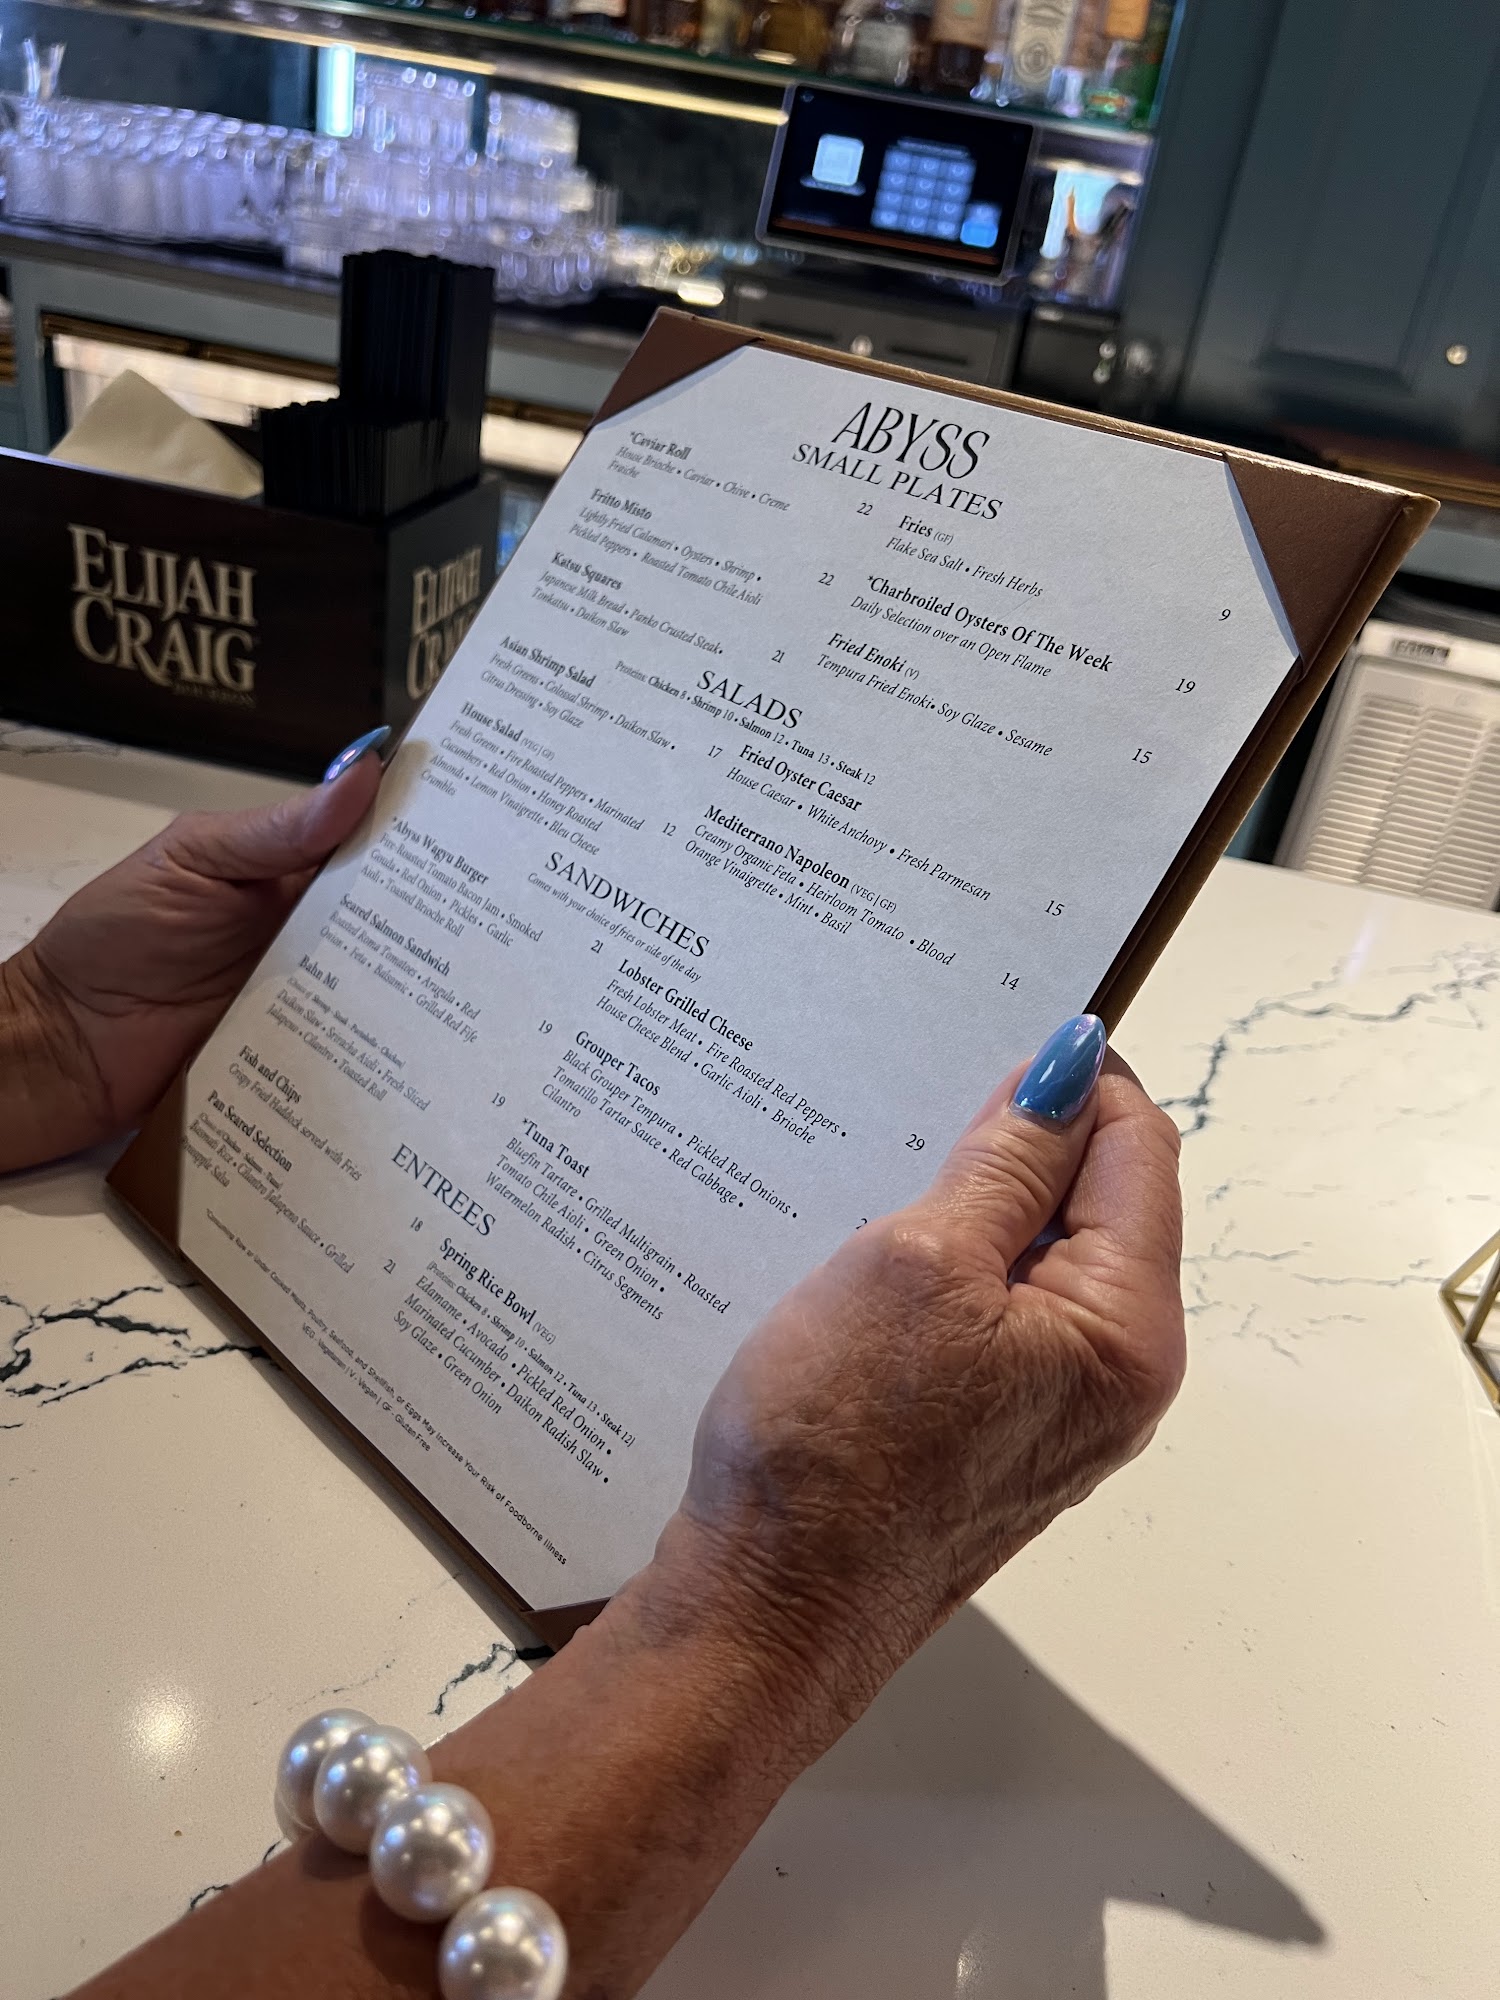 ABYSS
SMALL PLATES
*Caviar Roll
House Brioche • Caviar • Chive • Creme
Fraiche
22
Fritto Misto
Lightly Fried Calamari • Oysters • Shrimp •
Pickled Peppers • Roasted Tomato Chile Aioli
22
Katsu Squares
Japanese Milk Bread • Panko Crusted Steak•
Tonkatsu • Daikon Slaw
21
Fries (GF)
Flake Sea Salt • Fresh Herbs
9
*Charbroiled Oysters Of The Week
Daily Selection over an Open Flame
19
Fried Enoki (V)
Tempura Fried Enoki• Soy Glaze • Sesame
15
SALADS
Proteins: Chicken 8 • Shrimp 10 • Salmon 12 • Tuna 13 • Steak 12
Asian Shrimp Salad
Fresh Greens • Colossal Shrimp • Daikon Slaw •
Citrus Dressing • Soy Glaze
17
House Salad (VEG|GF)
Fresh Greens • Fire Roasted Peppers • Marinated
Cucumbers • Red Onion • Honey Roasted
Almonds • Lemon Vinaigrette • Bleu Cheese
Crumbles
12
Fried Oyster Caesar
House Caesar • White Anchovy • Fresh Parmesan
15
Mediterrano Napoleon (VEG|GF)
Creamy Organic Feta • Heirloom Tomato • Blood
Orange Vinaigrette • Mint • Basil
14
SANDWICHES
Comes with your choice of fries or side of the day
*Abyss Wagyu Burger
Fire-Roasted Tomato Bacon Jam • Smoked
Gouda • Red Onion • Pickles • Garlic
Aioli • Toasted Brioche Roll
21
Seared Salmon Sandwich
Roasted Roma Tomatoes • Arugula • Red
Onion • Feta • Balsamic • Grilled Red Fife
19
Bahn Mi
(Choice of Shrimp - Steak - Portobello - Chicken)
Daikon Slaw • Sriracha Aioli • Fresh Sliced
Jalapeno • Cilantro • Toasted Roll
19
Lobster Grilled Cheese
Fresh Lobster Meat • Fire Roasted Red Peppers •
House Cheese Blend • Garlic Aioli • Brioche
29
Grouper Tacos
Black Grouper Tempura • Pickled Red Onions •
Tomatillo Tartar Sauce • Red Cabbage •
Cilantro
*Tuna Toast
Bluefin Tartare • Grilled Multigrain • Roasted
Tomato Chile Aioli • Green Onion •
Watermelon Radish • Citrus Segments
ENTREES
Fish and Chips
Crispy Fried Haddock served with Fries
18
Pan Seared Selection
(Choice of Chicken - Salmon - Tuna)
Basmati Rice • Cilantro Jalapeno Sauce • Grilled
Pineapple Salsa
21
Spring Rice Bowl (VEG)
(Proteins: Chicken 8 • Shrimp 10 • Salmon 12 • Tuna 13 • Steak 12)
Edamame • Avocado • Pickled Red Onion •
Marinated Cucumber • Daikon Radish Slaw •
Soy Glaze • Green Onion
*Consuming Raw or Under Cooked Meats, Poultry, Seafood, and Shellfish, or Eggs May Increase Your Risk of Foodborne Illness
VEG - Vegetarian | V - Vegan | GF - Gluten Free
ELIJAH
CRAIG
ELIJAH